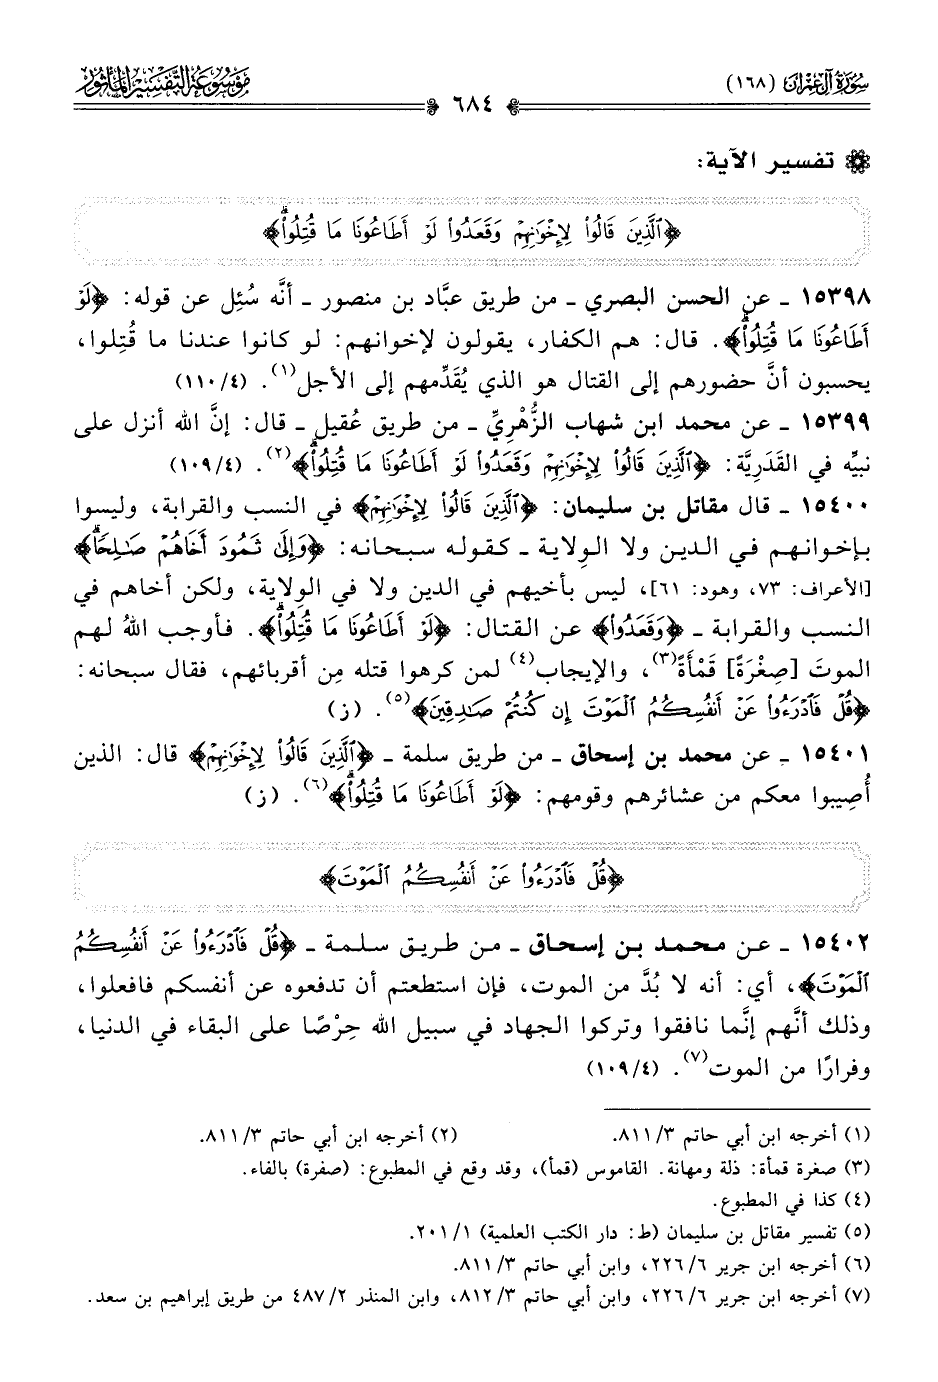 سُورَةُ آلِ عِمْرَانَ (١٦٨)
٦٨٤
مَوْسُوعَةُ التَّفْسِيرِ المَأْثُورِ
تفسير الآية:
﴿ٱلَّذِينَ قَالُوا۟ لِإِخْوَٰنِهِمْ وَقَعَدُوا۟ لَوْ أَطَاعُونَا مَا قُتِلُوا۟ۗ﴾
١٥٣٩٨ ـ عن الحسن البصري ـ من طريق عبَّاد بن منصور ـ أنَّه سُئِل عن قوله: ﴿لَوْ
أَطَاعُونَا مَا قُتِلُوا۟ۗ﴾. قال: هم الكفار، يقولون لإخوانهم: لو كانوا عندنا ما قُتِلوا،
يحسبون أنَّ حضورهم إلى القتال هو الذي يُقَدِّمهم إلى الأجل(١). (٤/ ١١٠)
١٥٣٩٩ ـ عن محمد ابن شهاب الزُّهْرِيِّ ـ من طريق عُقَيل ـ قال: إنَّ الله أنزل على
نبيِّه في القَدَرِيَّة: ﴿ٱلَّذِينَ قَالُوا۟ لِإِخْوَٰنِهِمْ وَقَعَدُوا۟ لَوْ أَطَاعُونَا مَا قُتِلُوا۟ۗ﴾(٢). (٤/ ١٠٩)
١٥٤٠٠ ـ قال مقاتل بن سليمان: ﴿ٱلَّذِينَ قَالُوا۟ لِإِخْوَٰنِهِمْ﴾ في النسب والقرابة، وليسوا
بإخوانهم في الدين ولا الوِلاية ـ كقوله سبحانه: ﴿وَإِلَىٰ ثَمُودَ أَخَاهُمْ صَـٰلِحًاۗ﴾
[الأعراف: ٧٣، وهود: ٦١]، ليس بأخيهم في الدين ولا في الوِلاية، ولكن أخاهم في
النسب والقرابة ـ ﴿وَقَعَدُوا۟﴾ عن القتال: ﴿لَوْ أَطَاعُونَا مَا قُتِلُوا۟ۗ﴾. فأوجب اللهُ لهم
الموتَ [صِغْرَةً] قَمْأَةً(٣)، والإيجاب(٤) لمن كرهوا قتله مِن أقربائهم، فقال سبحانه:
﴿قُلْ فَٱدْرَءُوا۟ عَنْ أَنفُسِكُمُ ٱلْمَوْتَ إِن كُنتُمْ صَـٰدِقِينَ﴾(٥). (ز)
١٥٤٠١ ـ عن محمد بن إسحاق ـ من طريق سلمة ـ ﴿ٱلَّذِينَ قَالُوا۟ لِإِخْوَٰنِهِمْ﴾ قال: الذين
أُصِيبوا معكم من عشائرهم وقومهم: ﴿لَوْ أَطَاعُونَا مَا قُتِلُوا۟ۗ﴾(٦). (ز)
﴿قُلْ فَٱدْرَءُوا۟ عَنْ أَنفُسِكُمُ ٱلْمَوْتَ﴾
١٥٤٠٢ ـ عن محمد بن إسحاق ـ من طريق سلمة ـ ﴿قُلْ فَٱدْرَءُوا۟ عَنْ أَنفُسِكُمُ
ٱلْمَوْتَ﴾، أي: أنه لا بُدَّ من الموت، فإن استطعتم أن تدفعوه عن أنفسكم فافعلوا،
وذلك أنَّهم إنَّما نافقوا وتركوا الجهاد في سبيل الله حِرْصًا على البقاء في الدنيا،
وفرارًا من الموت(٧). (٤/ ١٠٩)
(١) أخرجه ابن أبي حاتم ٣/ ٨١١. (٢) أخرجه ابن أبي حاتم ٣/ ٨١١.
(٣) صغرة قمأة: ذلة ومهانة. القاموس (قمأ)، وقد وقع في المطبوع: (صفرة) بالفاء.
(٤) كذا في المطبوع.
(٥) تفسير مقاتل بن سليمان (ط: دار الكتب العلمية) ١/ ٢٠١.
(٦) أخرجه ابن جرير ٦/ ٢٢٦، وابن أبي حاتم ٣/ ٨١١.
(٧) أخرجه ابن جرير ٦/ ٢٢٦، وابن أبي حاتم ٣/ ٨١٢، وابن المنذر ٢/ ٤٨٧ من طريق إبراهيم بن سعد.